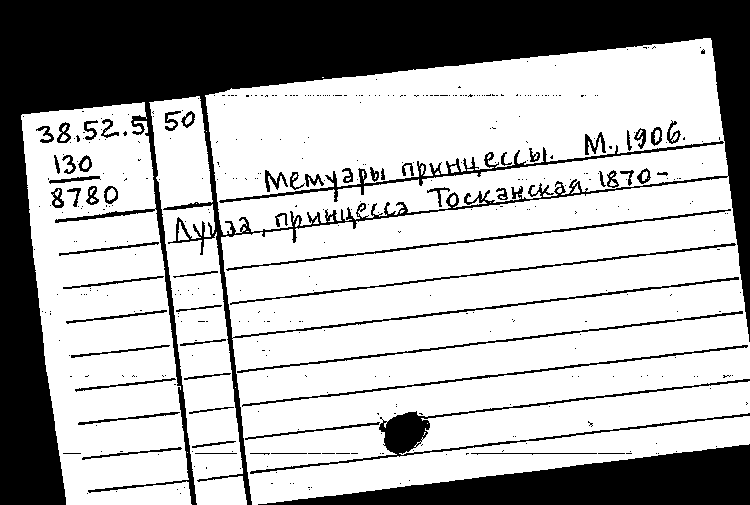 38.52.5 50
130
8780
Мемуары принцессы. М., 1906.
Луиза, принцесса Тосканская. 1870-